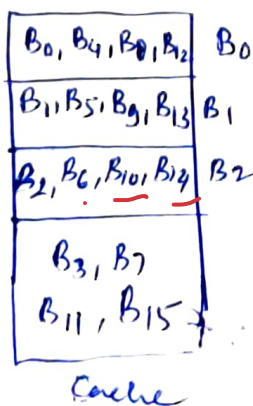 B0, B4, B8, B12 B0
B11, B5, B9, B13 B1
B2, B6, B10, B14 B2
B3, B7
B11, B15
Cache